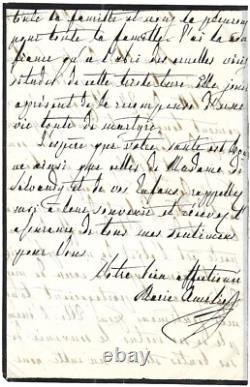 toute la famille et nous la pleurons
pour toute la famille. J'ai la con
fiance qu'à l'abri des cruelles vicis
situdes de cette triste terre Elle jouit
à présent de la récompense d'une
vie toute de martyre.
J'espère que votre santé est bonne
ainsi que celles de Madame de
Salvandy et de vos Enfans, rappellez
moi à leur souvenir et recevez l'
assurance de tous mes sentimens
pour Vous
Votre bien affectionnée
Marie Amélie